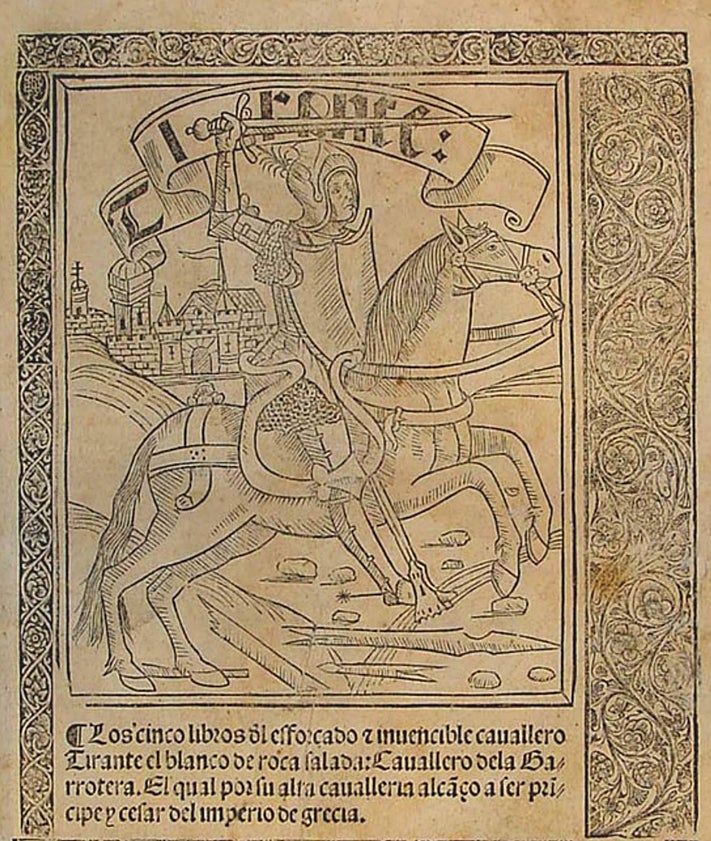 Tirante:
¶ Los cinco libros d̄l eſforçado ⁊ inuencible cauallero
Tirante el blanco de roca ſalada: Cauallero dela Ga⸗
rrotera. El qual por ſu alta caualleria alcāço a ſer prī⸗
cipe y ceſar del imperio de grecia.